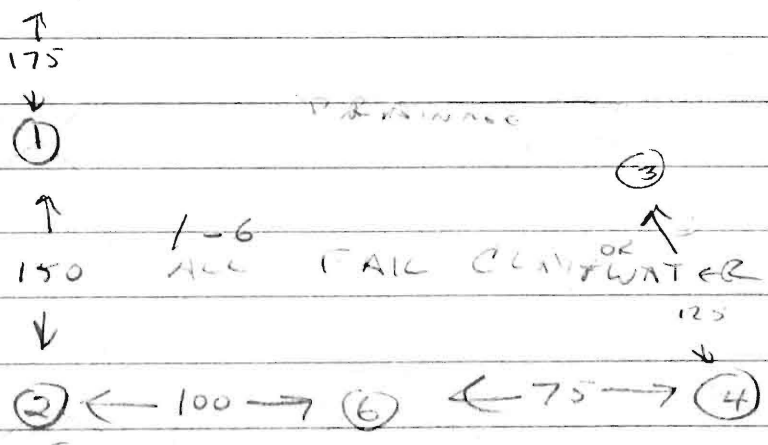 175
1
DRAINAGE
3
1-6
150 ALL FAIL CLAY OR WATER
125
2 ← 100 → 6 ← 75 → 4